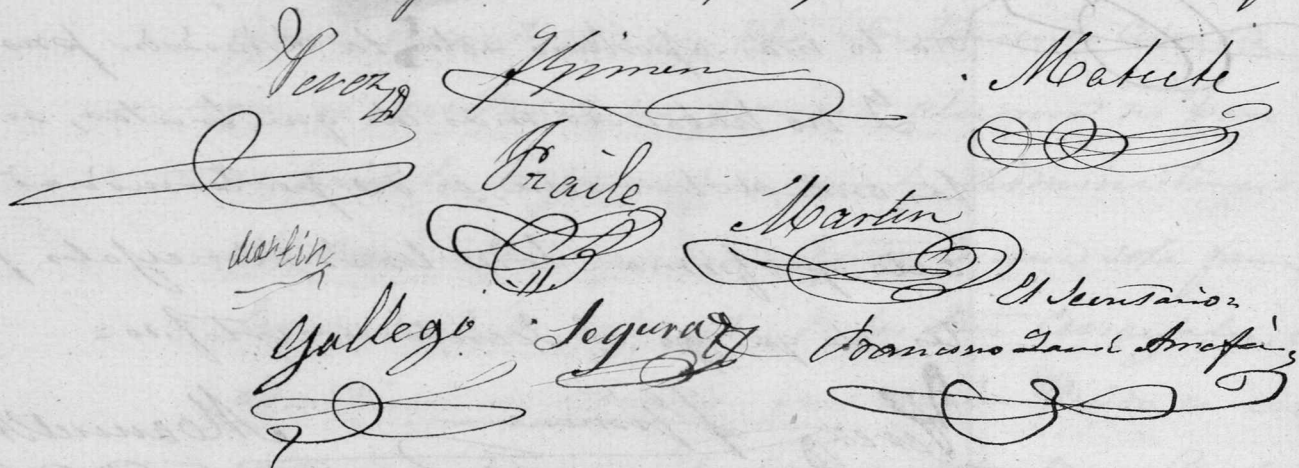 Perez
Gimen
Matute
Fraile
Martin
Martin
Gallego
Segura
El Secretario
Francisco